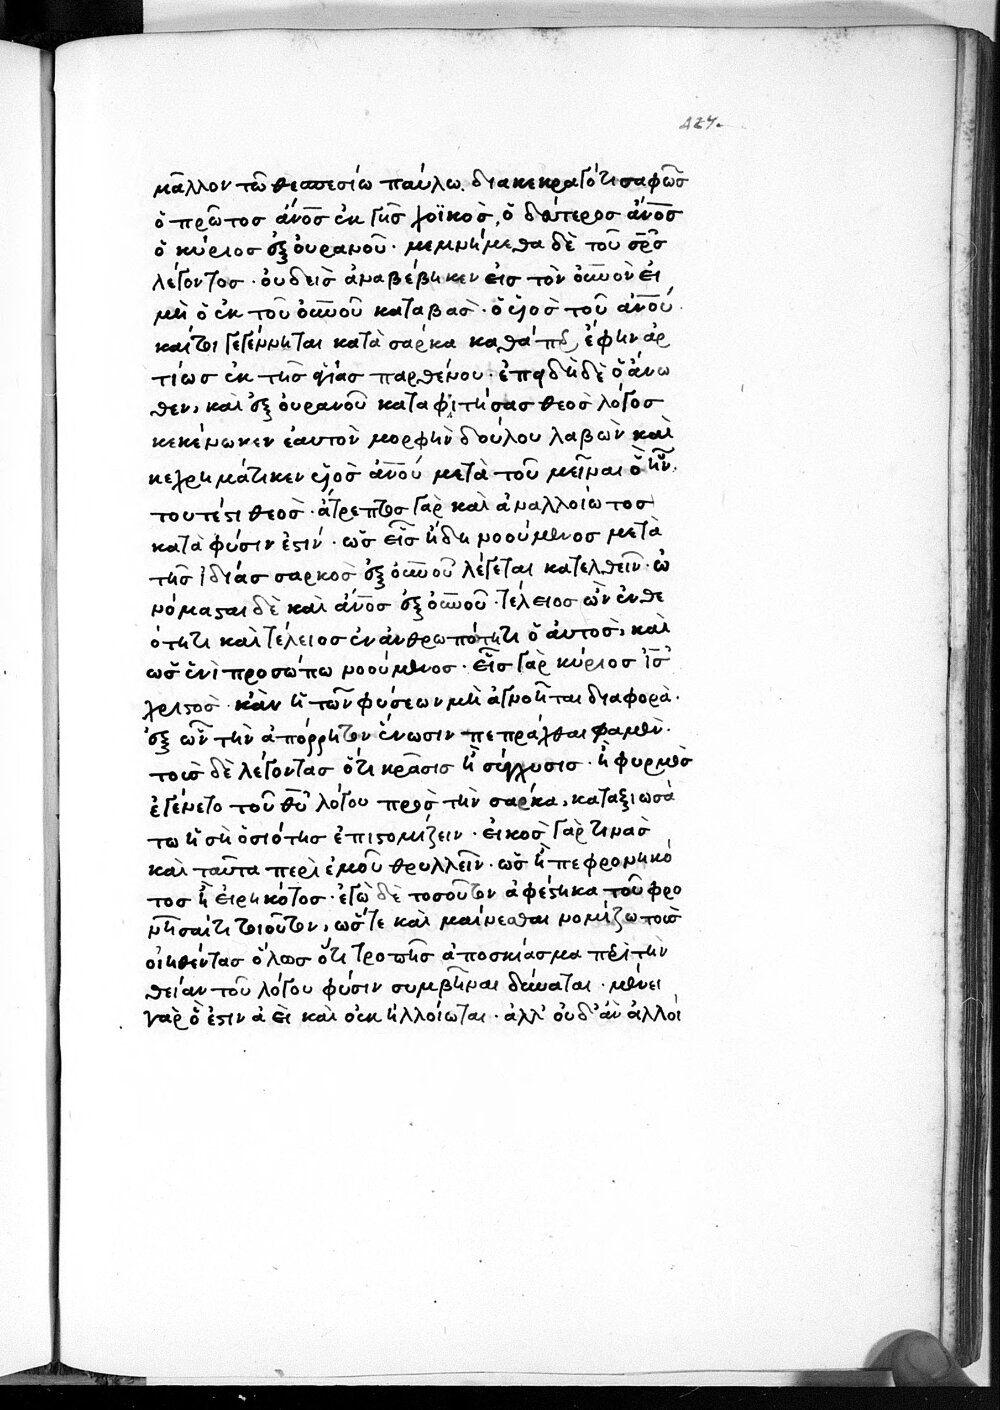 427.
μᾶλλον τῶ θεσπεσίω παύλω. διακεκραγότι σαφῶσ
ὁ πρῶτοσ ἄν̅ο̅σ ἐκ γῆσ χοϊκὸσ, ὁ δεύτεροσ ἄν̅ο̅σ
ὁ κύριοσ ἐξ ὀυρανοῦ· μεμνήμεθα δὲ τοῦ σ̅ρ̅σ
λέγοντοσ· ὀυδεὶσ ἀναβέβηκεν ἐισ τὸν ὀυ̅νὸν ἐι
μὴ ὁ ἐκ τοῦ ὀυ̅νοῦ καταβασ· ὁ ὑιὸσ τοῦ ἀν̅ο̅υ·
καίτοι γεγέννηται κατὰ σάρκα καθά περ ἔφην ἀρ
τίωσ ἐκ τῆσ ἁγίασ παρθένου· ἐπειδὴ δὲ ὁ ἄνω
θεν, καὶ ἐξ ὀυρανοῦ καταφιτήσασ θεὸσ λόγοσ
κεκένωκεν ἑαυτὸν μορφὴν δούλου λαβὼν καὶ
κεχρημάτικεν ὑιὸσ ἀν̅ο̅υ μετὰ τοῦ μεῖναι ὃ ἦν,
τουτέστι θεὸσ· ἄτρεπτοσ γὰρ καὶ ἀναλλοίωτοσ
κατὰ φύσιν ἐστίν· ὡσ εἷσ ἤδη νοούμενοσ μετὰ
τῆσ ἰδιάσ σαρκὸσ ἐξ ὀυ̅νοῦ λέγεται κατελθεῖν· ὠ
νόμασται δὲ καὶ ἄν̅ο̅σ ἐξ ὀυ̅νοῦ· τέλειοσ ὢν ἐν θε
ότητι καὶ τέλειοσ ἐν ἀνθρωπότητι ὁ ἀυτὸσ, καὶ
ὡσ ἐνὶ προσώπω νοούμενοσ· εἷσ γὰρ κύριοσ ἰ̅σ̅
χριστὸσ· κἂν ἡ τῶν φύσεων μὴ ἀγνοῆται διαφορὰ·
ἐξ ὧν τὴν ἀπόρρητον ἕνωσιν πεπράχθαι φαμὲν·
τοὺσ δὲ λέγοντασ ὅτι κρᾶσισ ἢ σύγχυσισ· ἢ φυρμὸσ
ἐγένετο τοῦ θ̅υ̅ λόγου πρὸσ τὴν σαρκα, καταξιωσά
τω ἡ σὴ ὁσιότησ ἐπιστομίζειν· ἐικοσ γάρ τινασ
καὶ ταῦτα περὶ ἐμοῦ θρυλλεῖν· ὡσ ἢ πεφρονηκό
τοσ ἢ ἐιρηκότοσ· ἐγὼ δὲ τοσοῦτον ἀφέστηκα τοῦ φρο
νῆσαί τι τοιοῦτον, ὥστε καὶ μαίνεσθαι νομίζω τοὺσ
οἰηθέντασ ὅλωσ ὅτι τροπῆσ ἀποσκίασμα περὶ τὴν
θείαν τοῦ λόγου φύσιν συμβῆναι δύναται· μένει
γὰρ ὅ ἐστιν ἀ εὶ καὶ ὀυκ ἠλλοίωται· ἀλλ' ὀυδ' ἂν ἀλλοι